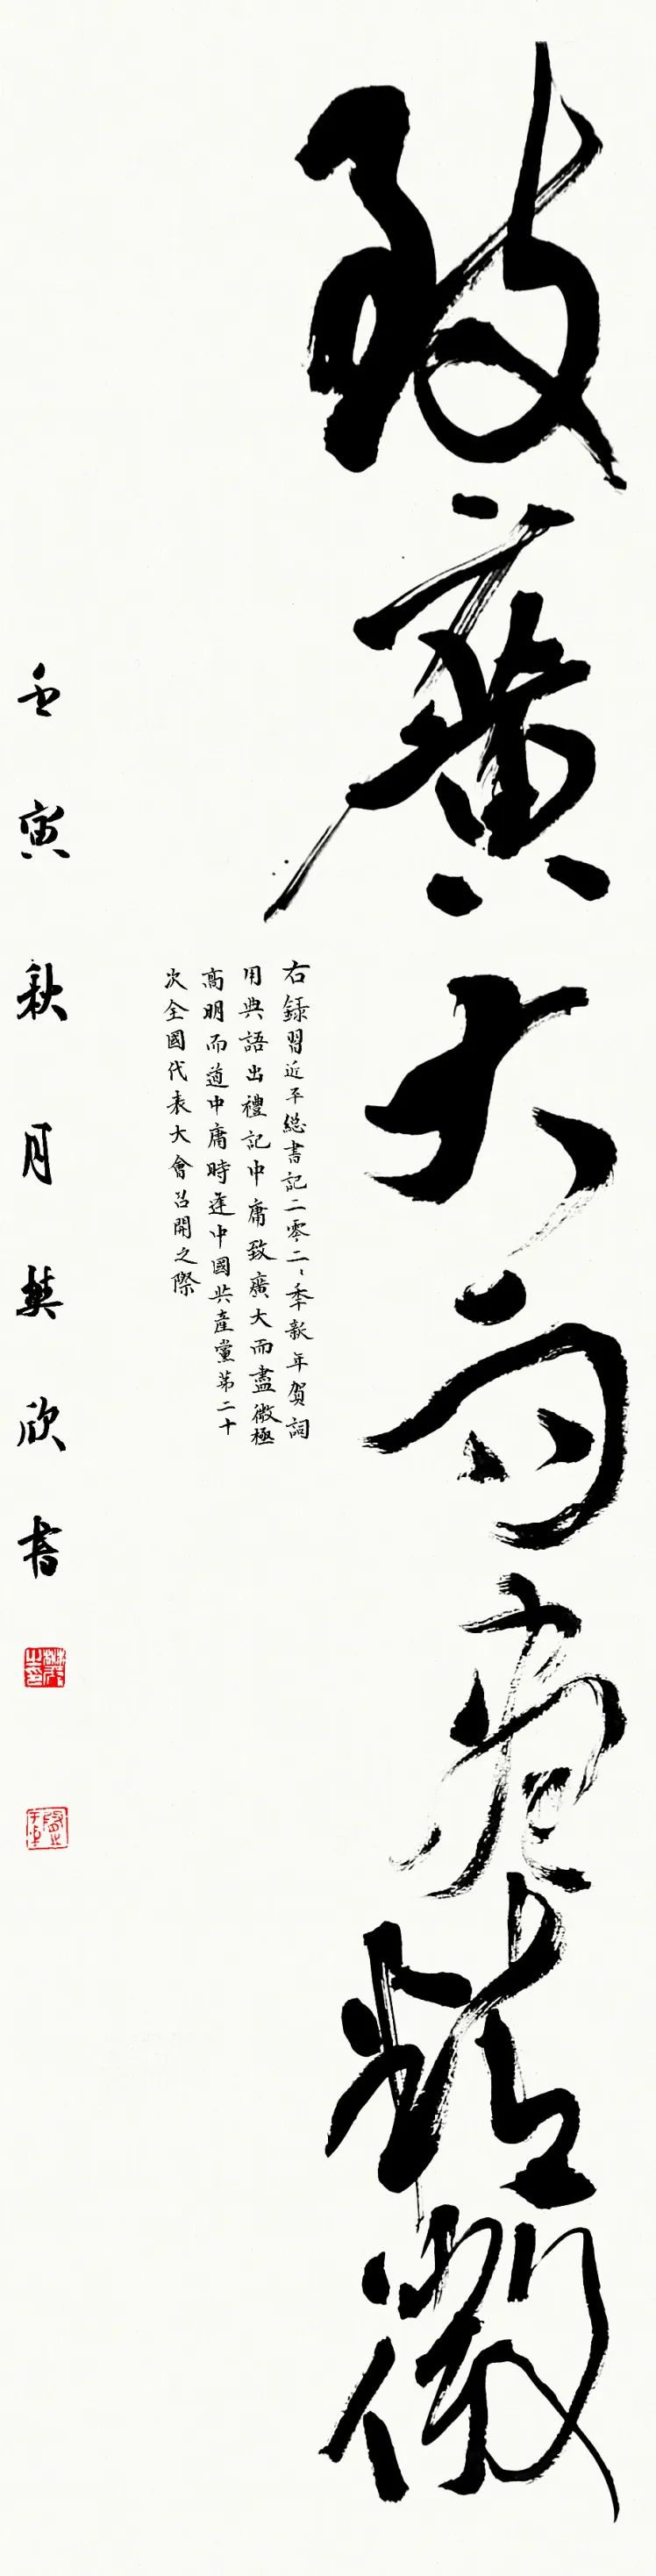 致廣大而盡精微
右録習近平總書記二零二、季新年賀詞
用典語出禮記中庸致廣大而盡微極
高明而道中庸時逢中國共產黨第二十
次全國代表大會召開之際
壬寅秋月樊欣書